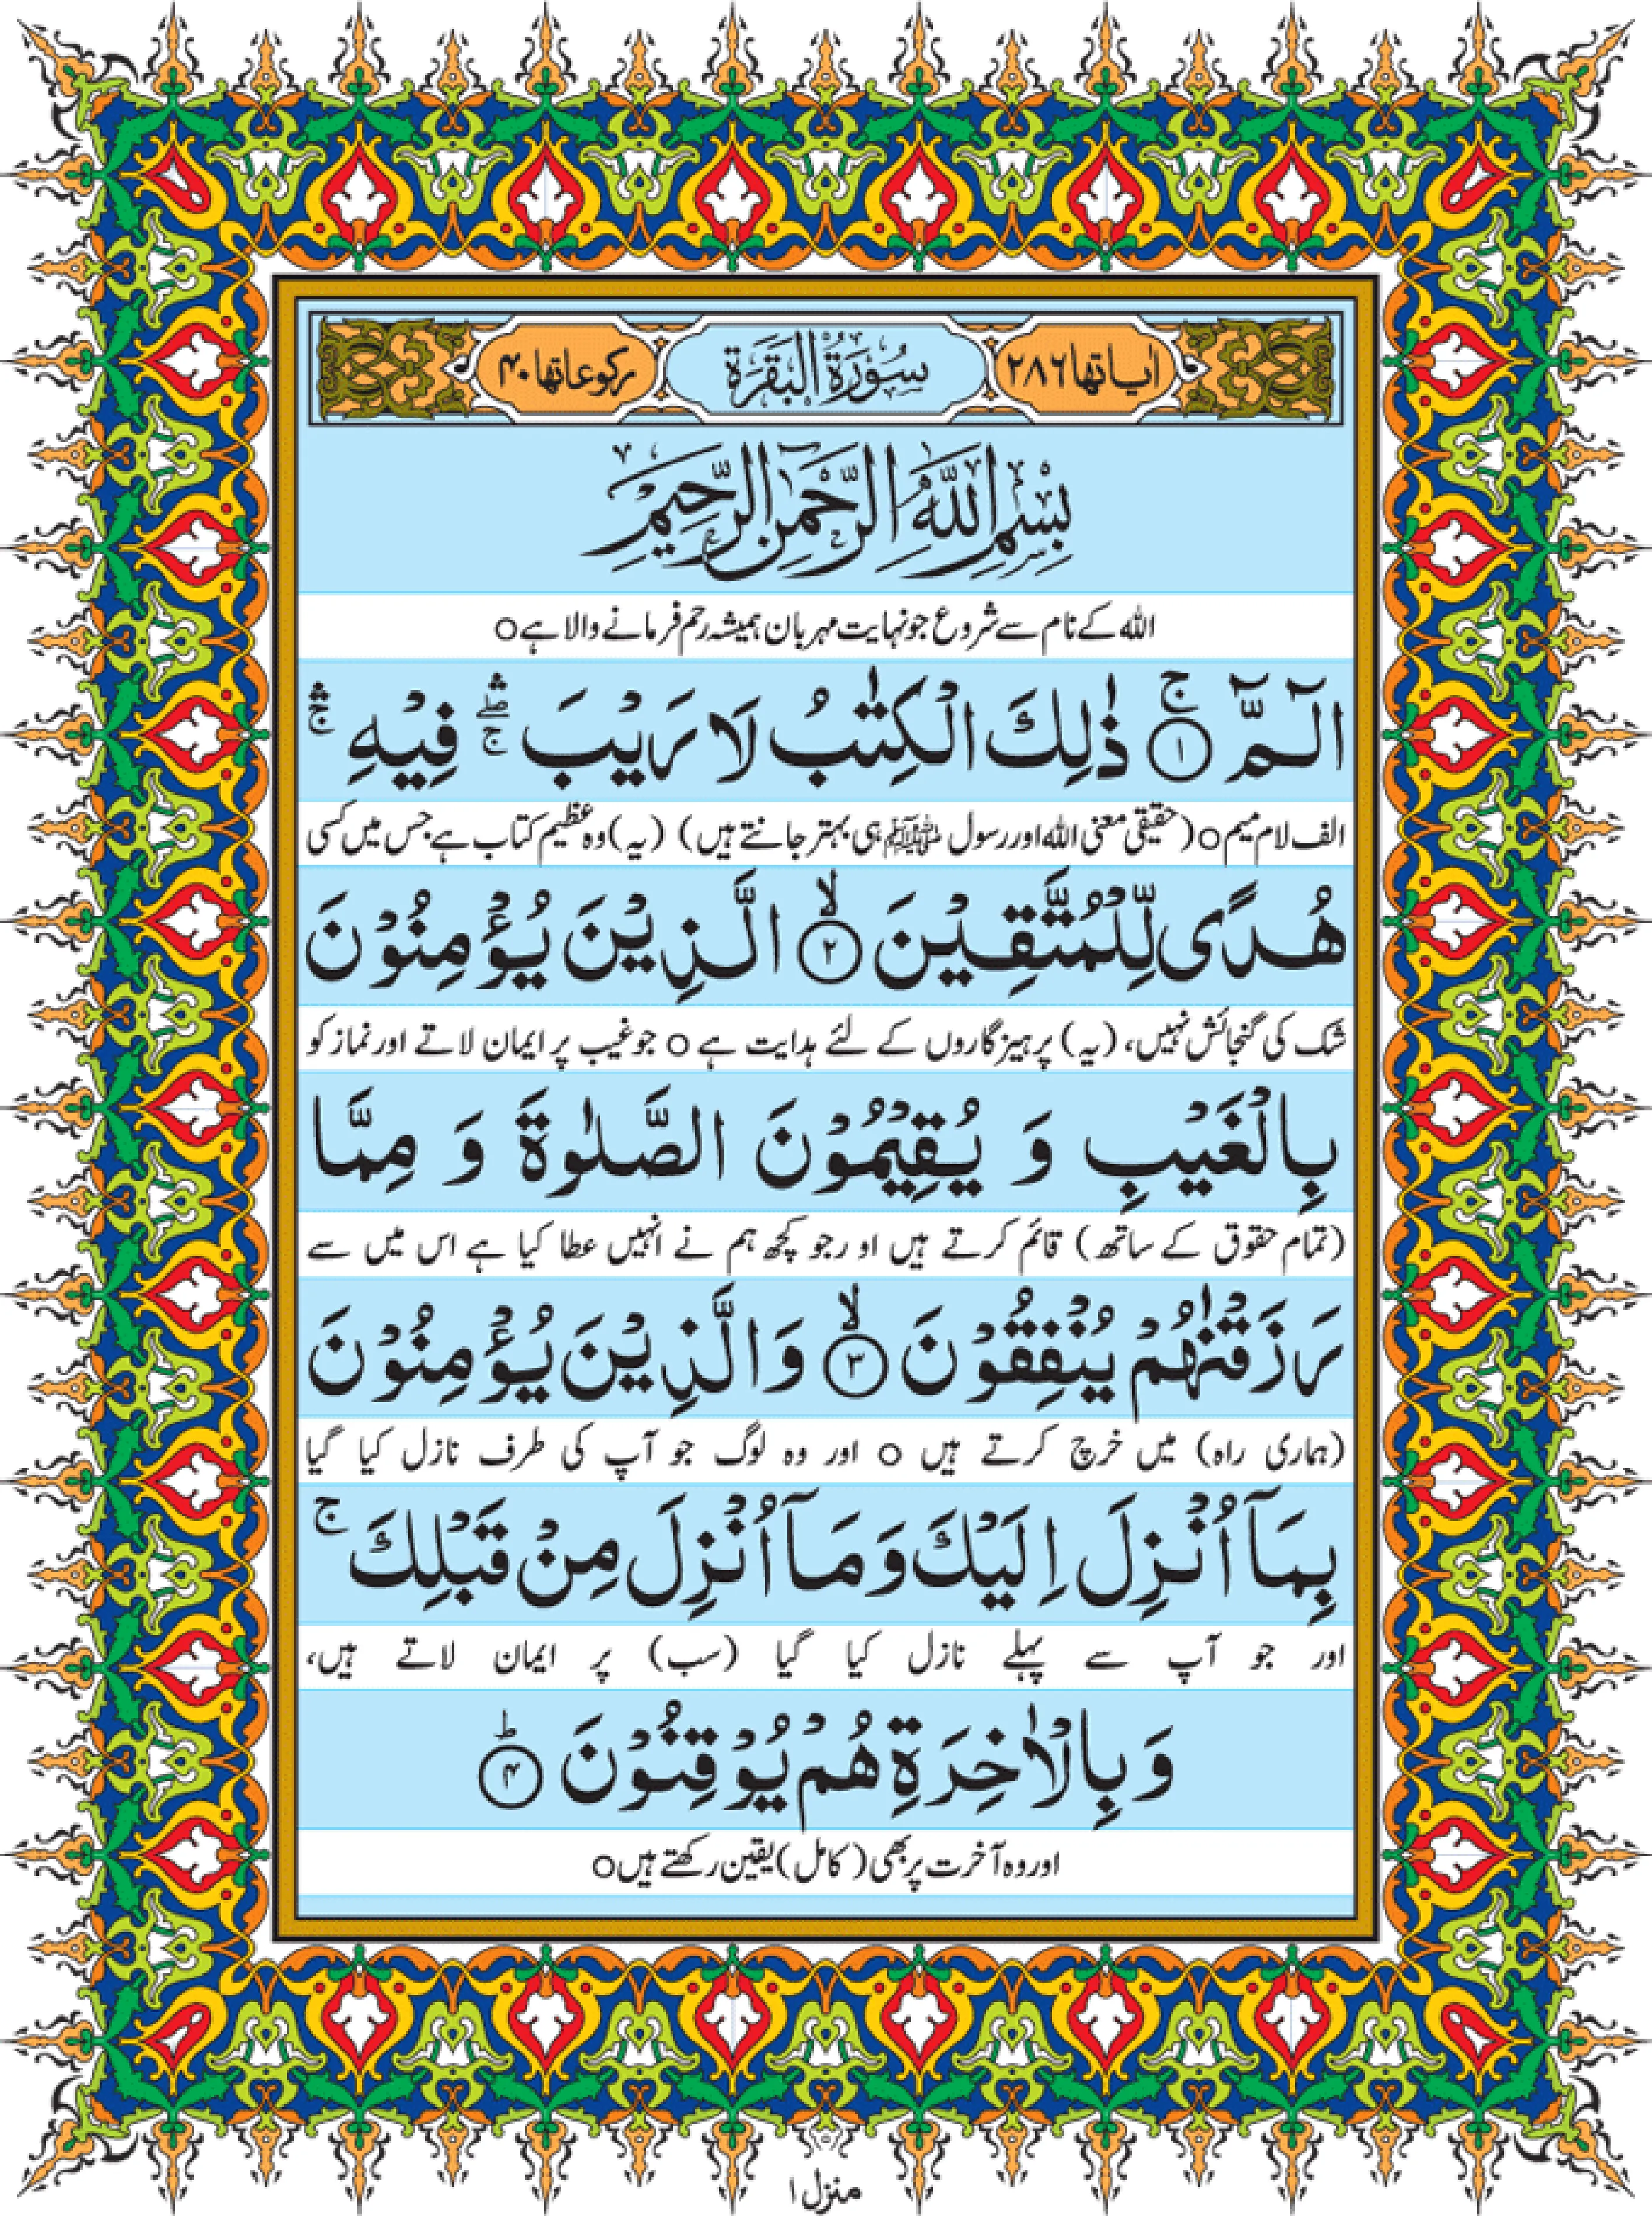 اٰیاتها ۲۸۶ سُوْرَةُ الْبَقَرَة رکوعاتها ۴۰
بِسْمِ اللّٰهِ الرَّحْمٰنِ الرَّحِیْمِ
الله کے نام سے شروع جو نہایت مہربان ہمیشہ رحم فرمانے والا ہے o
الٓمّٓ ۚ﴿۱﴾ ذٰلِكَ الْكِتٰبُ لَا رَیْبَ ۛۖۚ فِیْهِ ۛۚ
الف لام میم o (حقیقی معنی الله اور رسول ﷺ ہی بہتر جانتے ہیں) (یہ) وہ عظیم کتاب ہے جس میں کسی
هُدًی لِّلْمُتَّقِیْنَ ۙ﴿۲﴾ الَّذِیْنَ یُؤْمِنُوْنَ
شک کی گنجائش نہیں، (یہ) پرہیزگاروں کے لئے ہدایت ہے o جو غیب پر ایمان لاتے اور نماز کو
بِالْغَیْبِ وَ یُقِیْمُوْنَ الصَّلٰوةَ وَ مِمَّا
(تمام حقوق کے ساتھ) قائم کرتے ہیں اور جو کچھ ہم نے انہیں عطا کیا ہے اس میں سے
رَزَقْنٰهُمْ یُنْفِقُوْنَ ۙ﴿۳﴾ وَالَّذِیْنَ یُؤْمِنُوْنَ
(ہماری راہ) میں خرچ کرتے ہیں o اور وہ لوگ جو آپ کی طرف نازل کیا گیا
بِمَاۤ اُنْزِلَ اِلَیْكَ وَ مَاۤ اُنْزِلَ مِنْ قَبْلِكَ ۚ
اور جو آپ سے پہلے نازل کیا گیا (سب) پر ایمان لاتے ہیں،
وَ بِالْاٰخِرَةِ هُمْ یُوْقِنُوْنَ ؕ﴿۴﴾
اور وہ آخرت پر بھی (کامل) یقین رکھتے ہیں o
منزل ۱